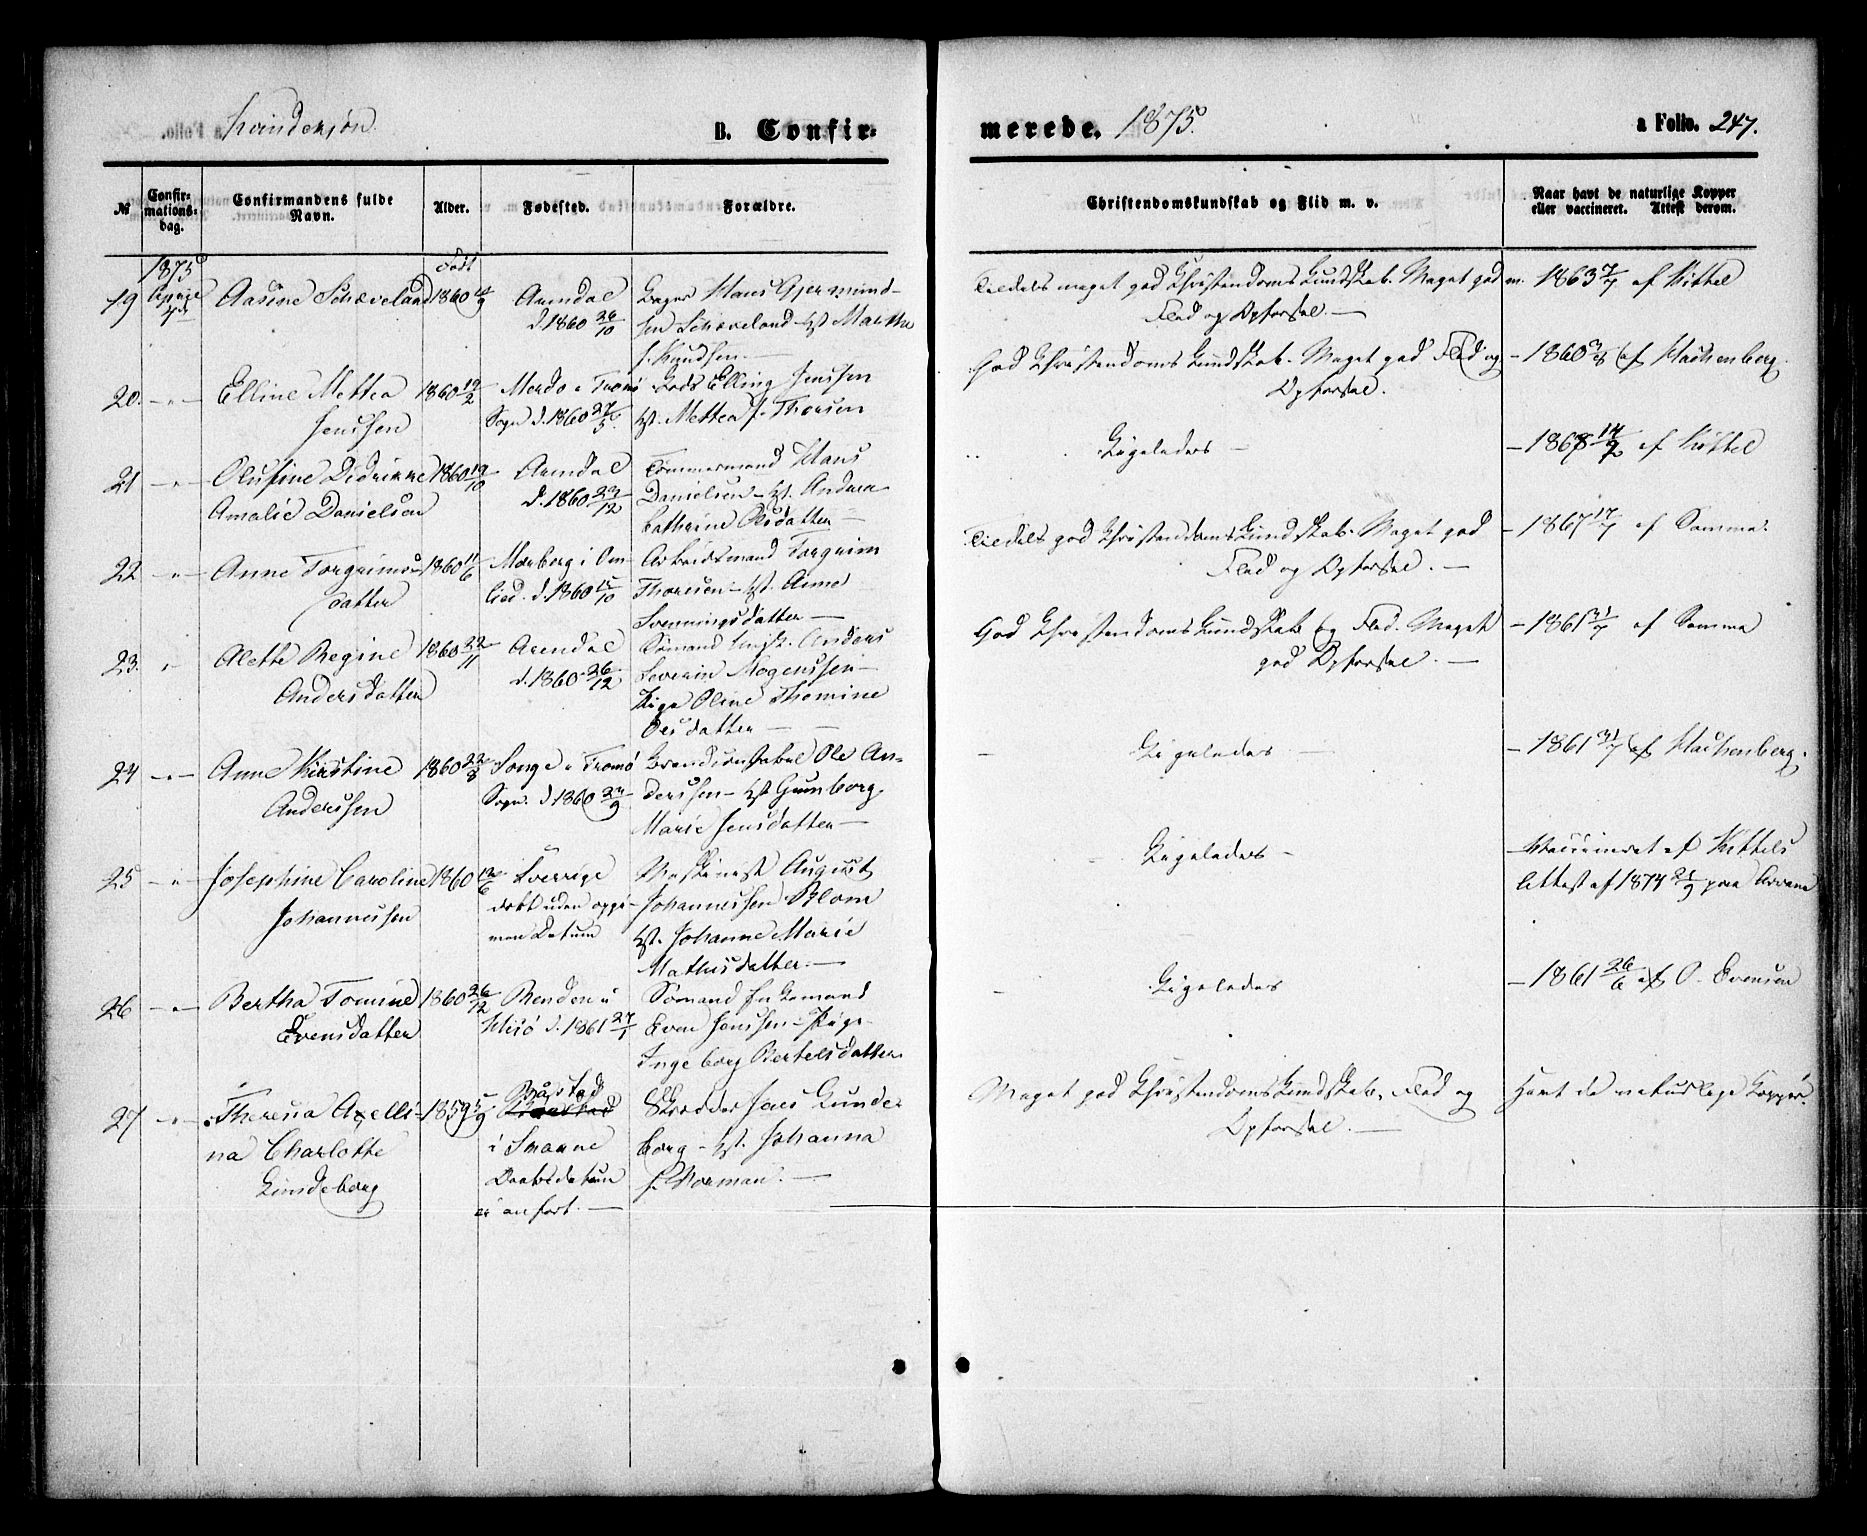 Kvindekjøn.
B. Confir-
merede. 1875.
a Folio. 247.
№
Confir-
mations-
dag.
Confirmandens fulde
Navn.
Alder.
Fødested.
Forældre.
Christendomskundskab og Flid m. v.
Naar havt de naturlige Kopper
eller vaccineret. Attest derom.
1875
Født
19
Aasine Schæveland
1860
Arendal
d. 1860 26/10
Hans Gjermund-
sen Schæveland Hst Marthe
f. Knudsen
Tildels meget god Christendoms Kundskab. Meget god
Flid og Opførsel.
1863 7/7 af Kittel
20.
Elline Mettea
Jenssen
1860 19/2
Merdø i Tromø
Sogn d. 1860 27/5
Elling Jenssen
Hst. Mettea f. Thorsen
God Christendoms Kundskab. Meget god Flid og
Opførsel.
af Hachenberg.
21
Olufine Didrikke
Amalie Danielsen
1860 19/10
Arendal
d. 1860 23/12
Tømmermand Hans
Danielsen Hst. Andrea
Cathrine Olsdatter
Ligeledes
af Kittel
22
Anne Torgrims-
datter
1860 11/6
d. 1860 15/10
Arbeidsmand Torgrim
Thorsen Hst. Anne
Svenningsdatter
Tildels god Christendoms Kundskab. Meget god
Flid og Opførsel.
1867 17/7 af Samme.
23.
Alette Regine
Andersdatter
1860 22/11
Arendal
d. 1860 26/12
Sømand Ungk. Anders
Severin Mogenssen
Pige Oline Thomine
Olsdatter
God Christendoms Kundskab og Flid. Meget
god Opførsel.
1861 31/7 af Samme
24
Anne Kirstine
Anderssen
1860 22/8
Songe i Tromø
Sogn. d. 1860 24/9
Brandconstabel Ole An-
derssen Hst Gunborg
Marie Jensdatter
Ligeledes
1861 31/7 af Hachenberg.
25
Josephine Caroline
Johannessen
1860 12/6
Sverrige
døbt uden opgi-
ven Datum
Maskinist August
Johannessen Blom
Hst. Johanne Marie
Mathisdatter
Ligeledes
Vaccineret af Kittels
Attest af 1874 21/9
26
Bertha Tomine
Evensdatter
1860 26/12
Hisø d. 1861 27/1
Sømand
Even Jenssen Pige
Ingeborg Bertelsdatter
Ligeledes
1861 26/6 af O. Evensen
27
Theresia Axelli-
na Charlotte
Lundeborg
1859 5/9
Båstad
i Skaane
Daabsdatum
ei anført.
Skrædder Jens Lunde-
borg Hst. Johanna
f. Norman.
Meget god Christendoms Kundskab, Flid og
Opførsel.
Havt de naturlige Kopper.